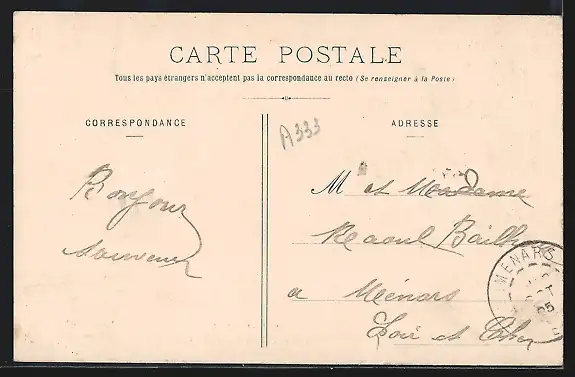 CARTE POSTALE
Tous les pays étrangers n'acceptent pas la correspondance au recto (Se renseigner à la Poste)
CORRESPONDANCE
ADRESSE
A333
Bonjour
Souvenir
M et Madame
Raoul Bailly
a Ménars
Loir et Cher
MENARS